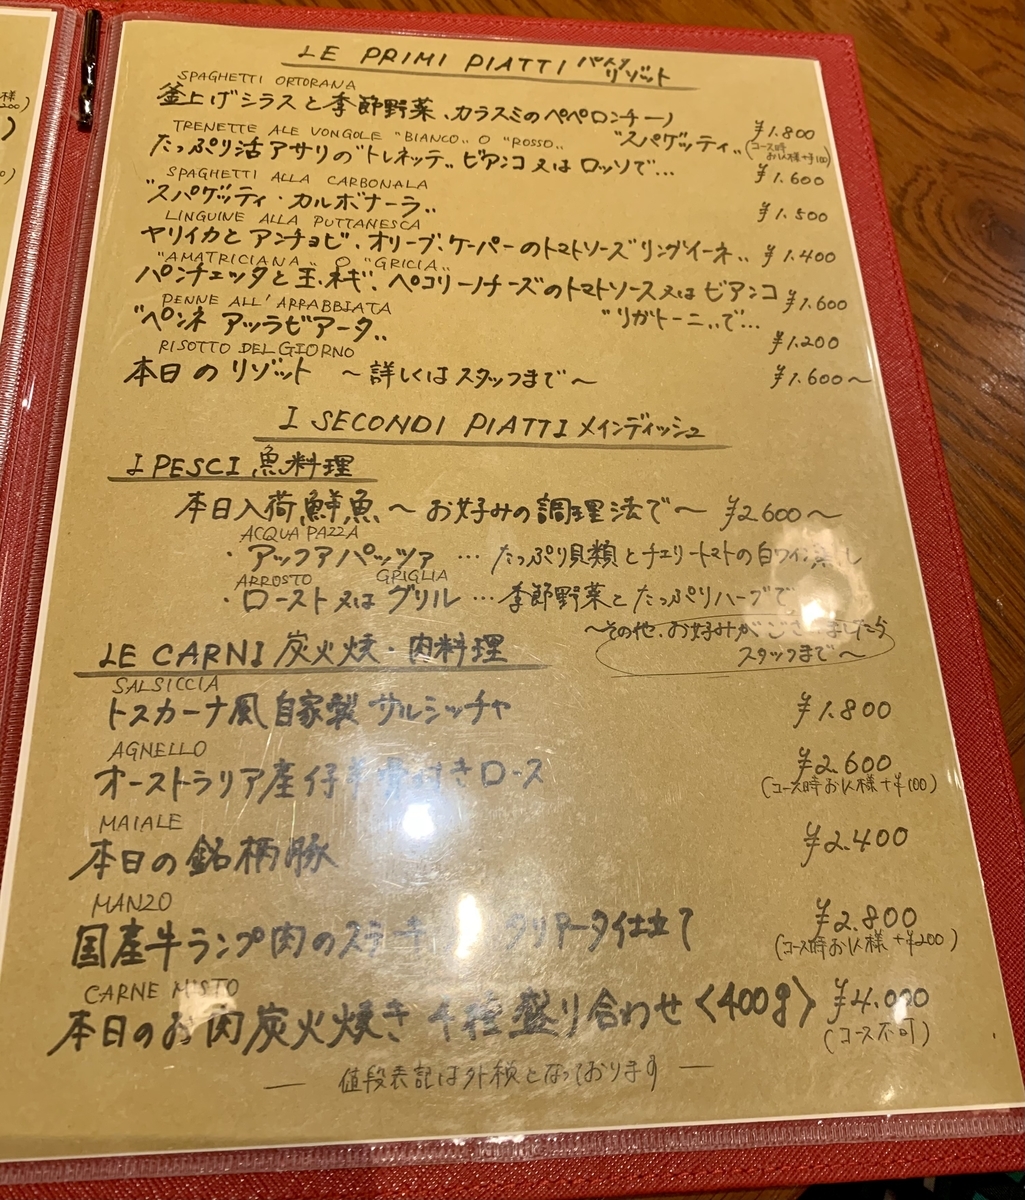 LE PRIMI PIATTI パスタ リゾット
SPAGHETTI ORTORANA
釜上げシラスと季節野菜、カラスミのペペロンチーノ
"スパゲッティ" ¥1.800
(コース時お1人様+¥100)
TRENETTE ALE VONGOLE "BIANCO" O "ROSSO"
たっぷり活アサリの"トレネッテ" ビアンコ又はロッソで… ¥1.600
SPAGHETTI ALLA CARBONALA
"スパゲッティ・カルボナーラ" ¥1.500
LINGUINE ALLA PUTTANESCA
ヤリイカとアンチョビ、オリーブ、ケーパーのトマトソース"リングイーネ" ¥1.400
"AMATRICIANA" O "GRICIA"
パンチェッタと玉ネギ、ペコリーノチーズのトマトソース又はビアンコ
"リガトーニ"で… ¥1.600
PENNE ALL'ARRABBIATA
"ペンネ アッラビアータ" ¥1.200
RISOTTO DEL GIORNO
本日のリゾット ～詳しくはスタッフまで～ ¥1.600～
I SECONDI PIATTI メインディッシュ
I PESCI 魚料理
本日入荷鮮魚～お好みの調理法で～ ¥2600～
ACQUA PAZZA
・アックアパッツァ … たっぷり貝類とチェリートマトの白ワイン蒸し
ARROSTO GRIGLIA
・ロースト又はグリル … 季節野菜とたっぷりハーブで
～その他、お好みがございましたら
スタッフまで～
LE CARNI 炭火焼・肉料理
SALSICCIA
トスカーナ風自家製サルシッチャ ¥1.800
AGNELLO
オーストラリア産仔羊骨付きロース ¥2.600
(コース時お1人様+¥100)
MAIALE
本日の銘柄豚 ¥2.400
MANZO
国産牛ランプ肉のステーキ タリアータ仕立て ¥2.800
(コース時お1人様+¥200)
CARNE MISTO
本日のお肉炭火焼き 4種盛り合わせ〈400g〉 ¥4.000
(コース不可)
― 値段表記は外税となっております ―